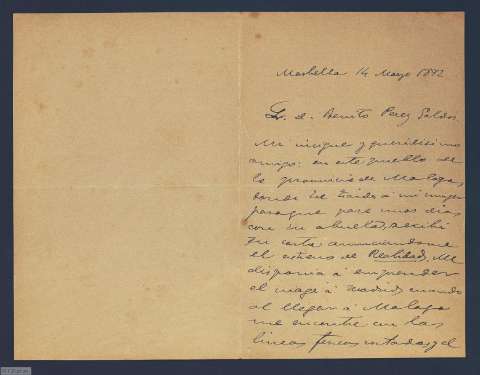 Marbella 14 Mayo 1892
Sr. d. Benito Perez Galdos.
Mi insigne y queridisimo
amigo: en este pueblo de
la provincia de Malaga,
donde he traido á mi mujer
para que pase unos dias
con su abuelita, recibí
su carta anunciandome
el estreno de Realidad. Me
disponia á emprender
el viage á Madrid, cuando
al llegar á Malaga
me encontré con las
lineas ferreas cortadas, y el